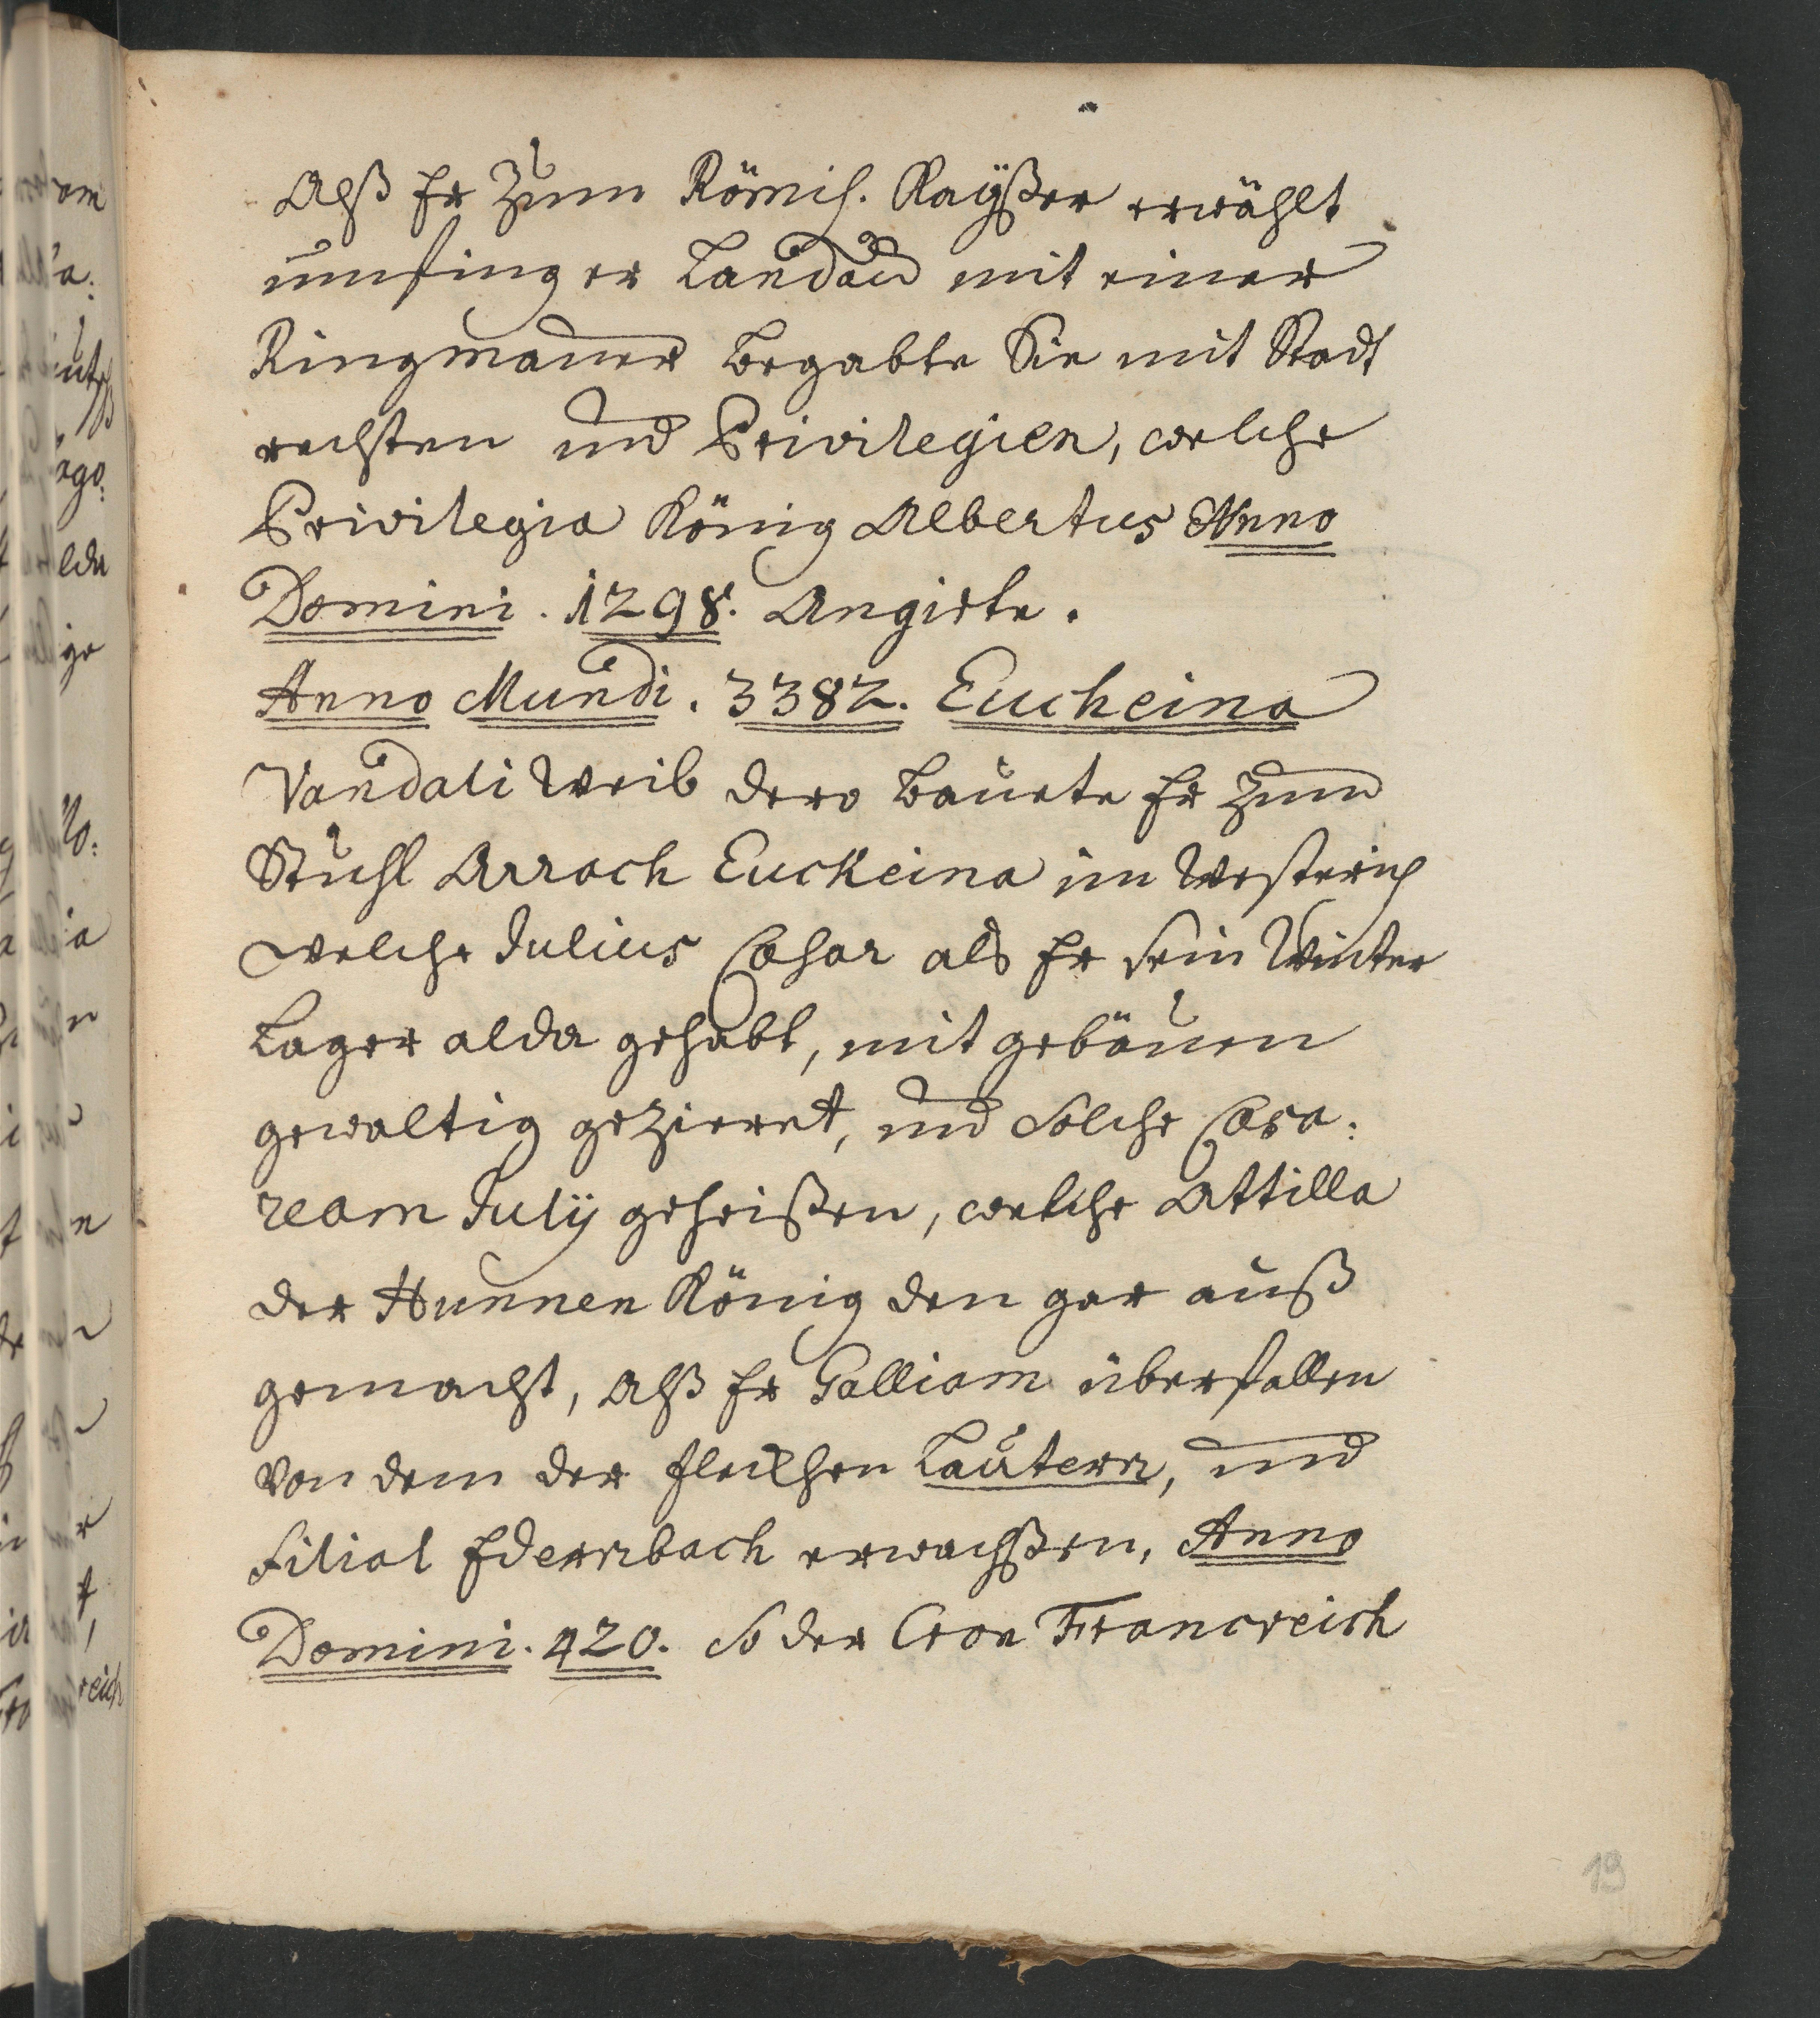 Alß Er zum Römis. Kaÿßer erwählt
umfing er Landau mit einer
Ringmauer begabte Sie mit Stadt
rechten und Privilegien, welche
Privilegia König Albertus Anno
Domini. 1298. Angirte.
Anno Mundi. 3382. Eucheina
Vandali Weib dero bauete Er zum
Stuhl Arrach Euckeina im Westerich
welche Julius Cæsar als Er sein Winter
Lager alda gehabt, mit gebäuen
gewaltig gezieret, und solche Cæsa:
ream Julij geheißen, welche Attilla
der Hunnen König den gar auß
gemacht, Alß Er Galliam überfallen
von dem der flecken Lautern, und
filial Ederrbach erwachßen, Anno
Domini. 420. So der Cron Francreich
19